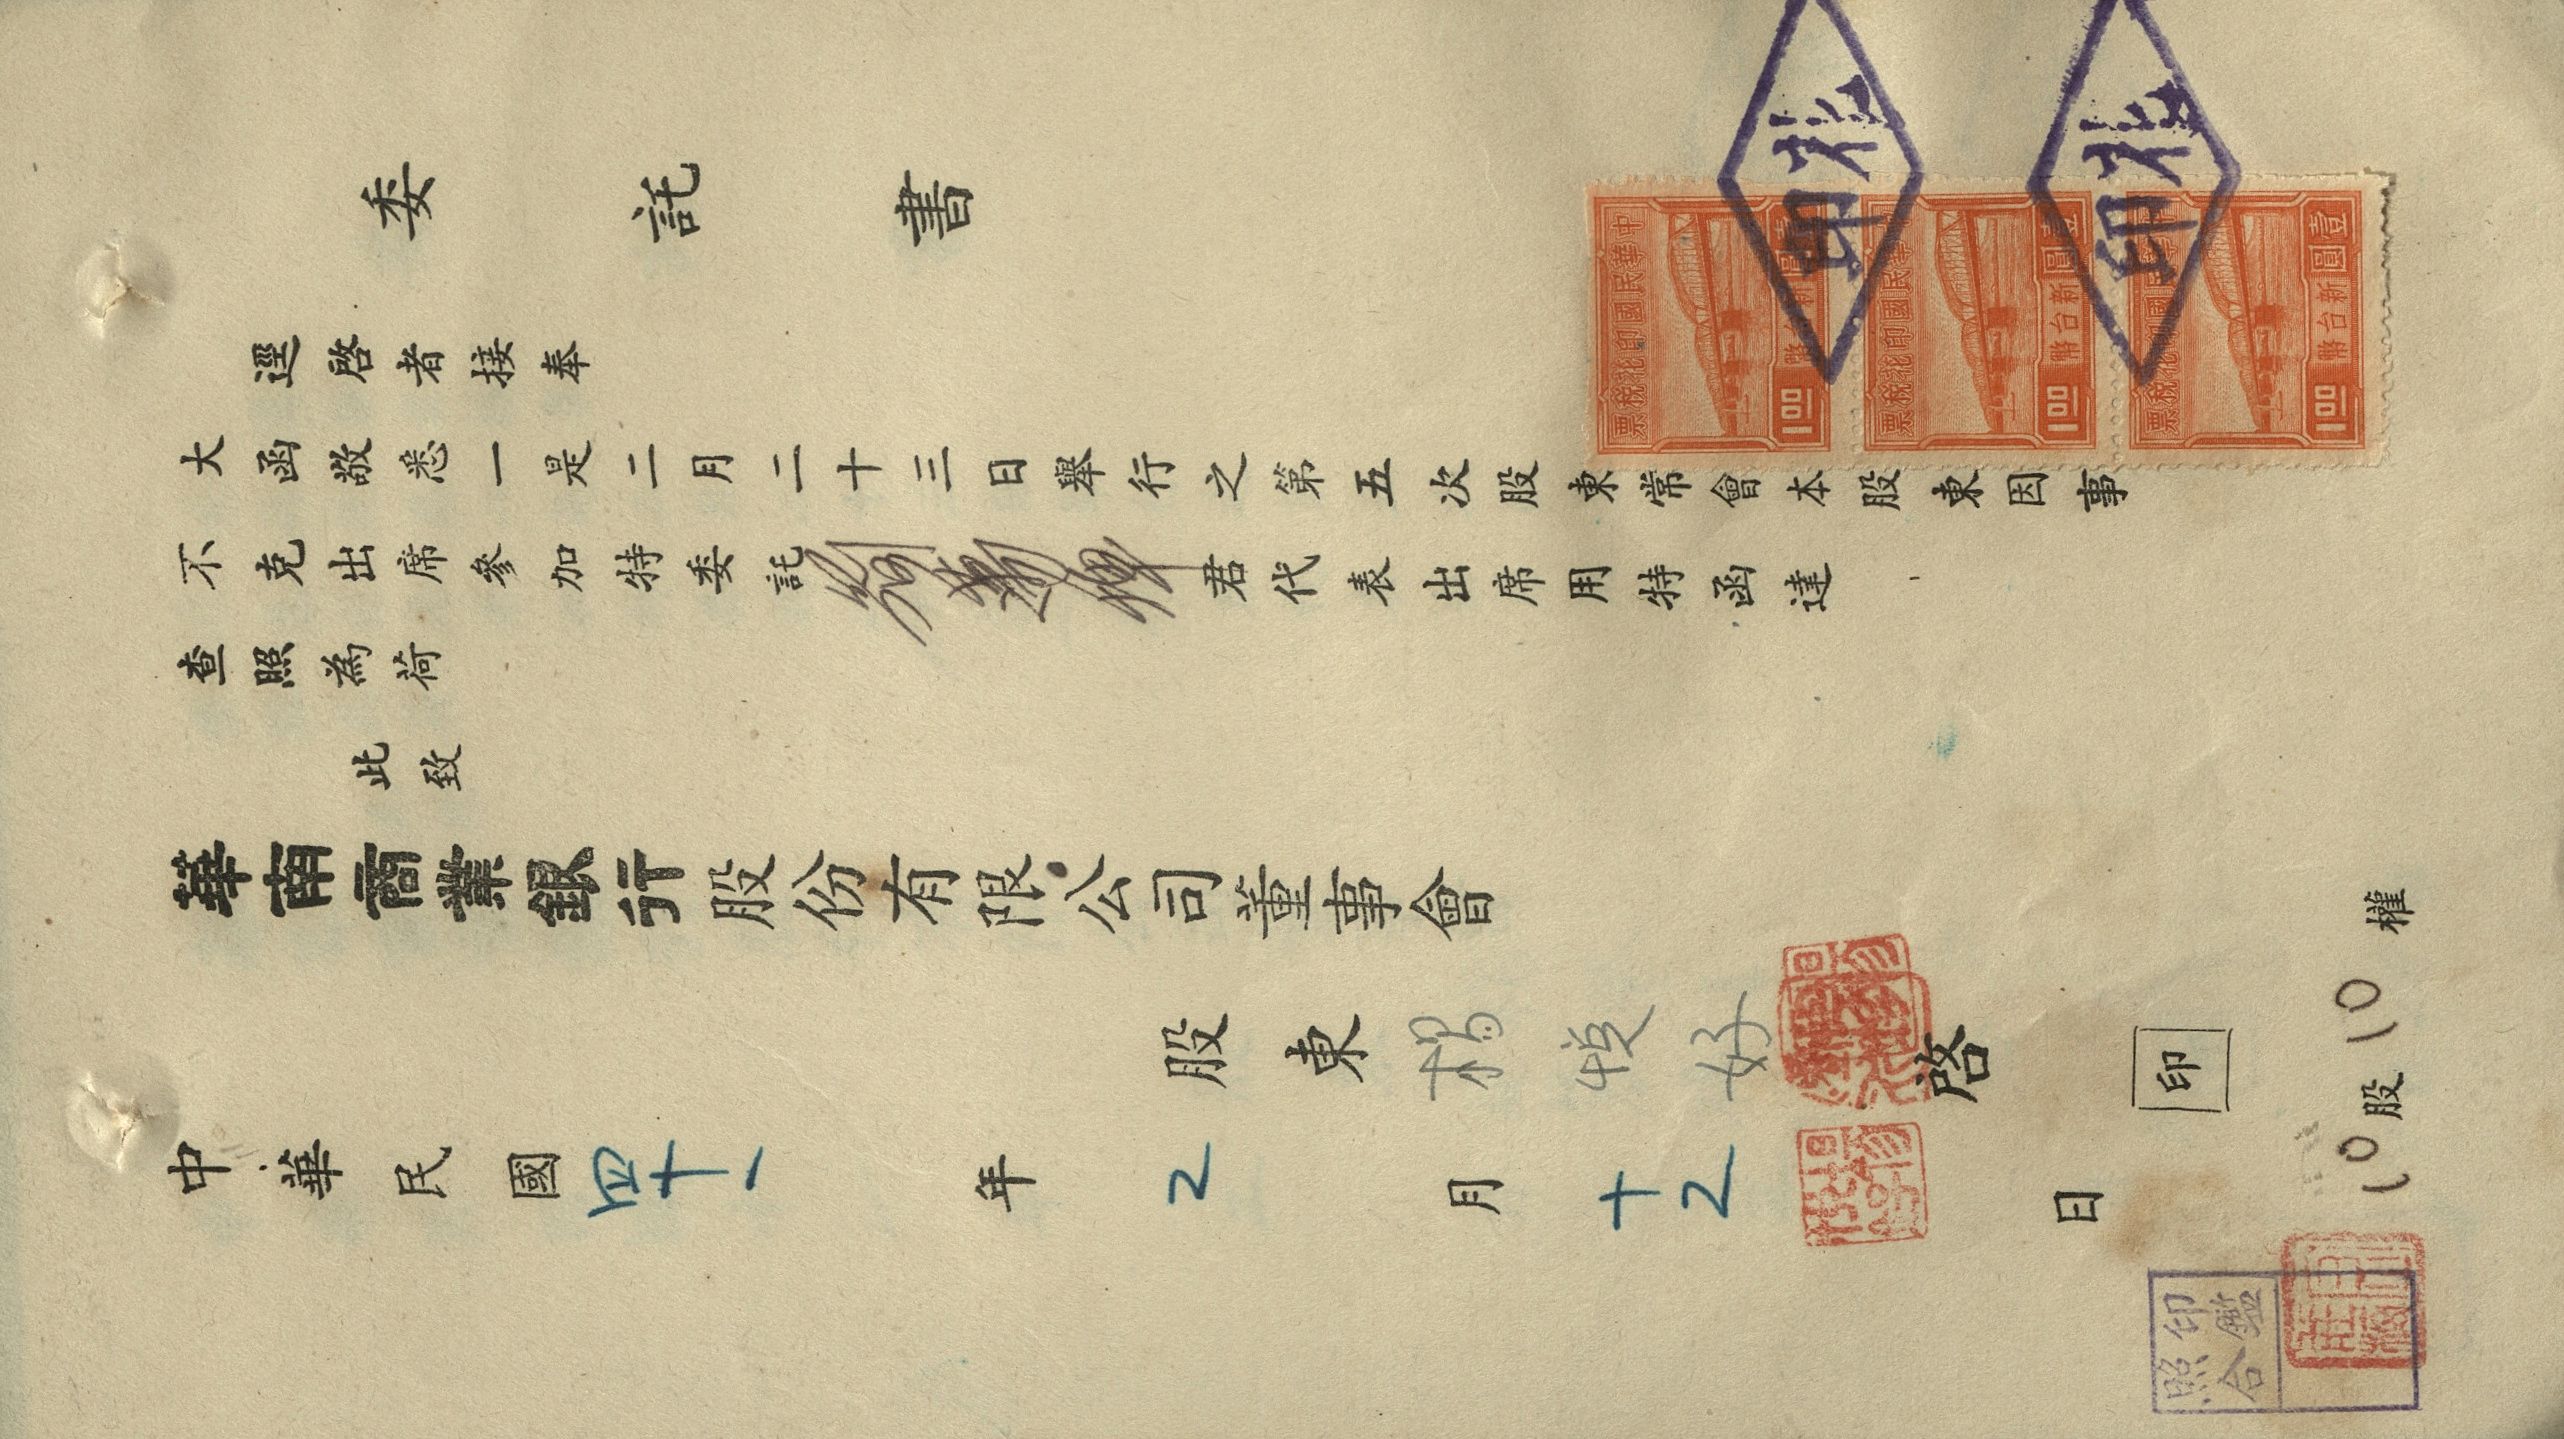 委託書
逕啓者接奉
大函敬悉一是二月二十三日舉行之第五次股東常會本股東因事
不克出席參加特委託 君代表出席用特函達
查照為荷
此致
華南商業銀行股份有限公司董事會
股東楊悅好啓
印
中華民國四十一年2月十2日
10股10權
中華民國印花稅票
壹圓新台幣
1.00
中華民國印花稅票
壹圓新台幣
1.00
中華民國印花稅票
壹圓新台幣
1.00
印花
印花
印鑑
照合